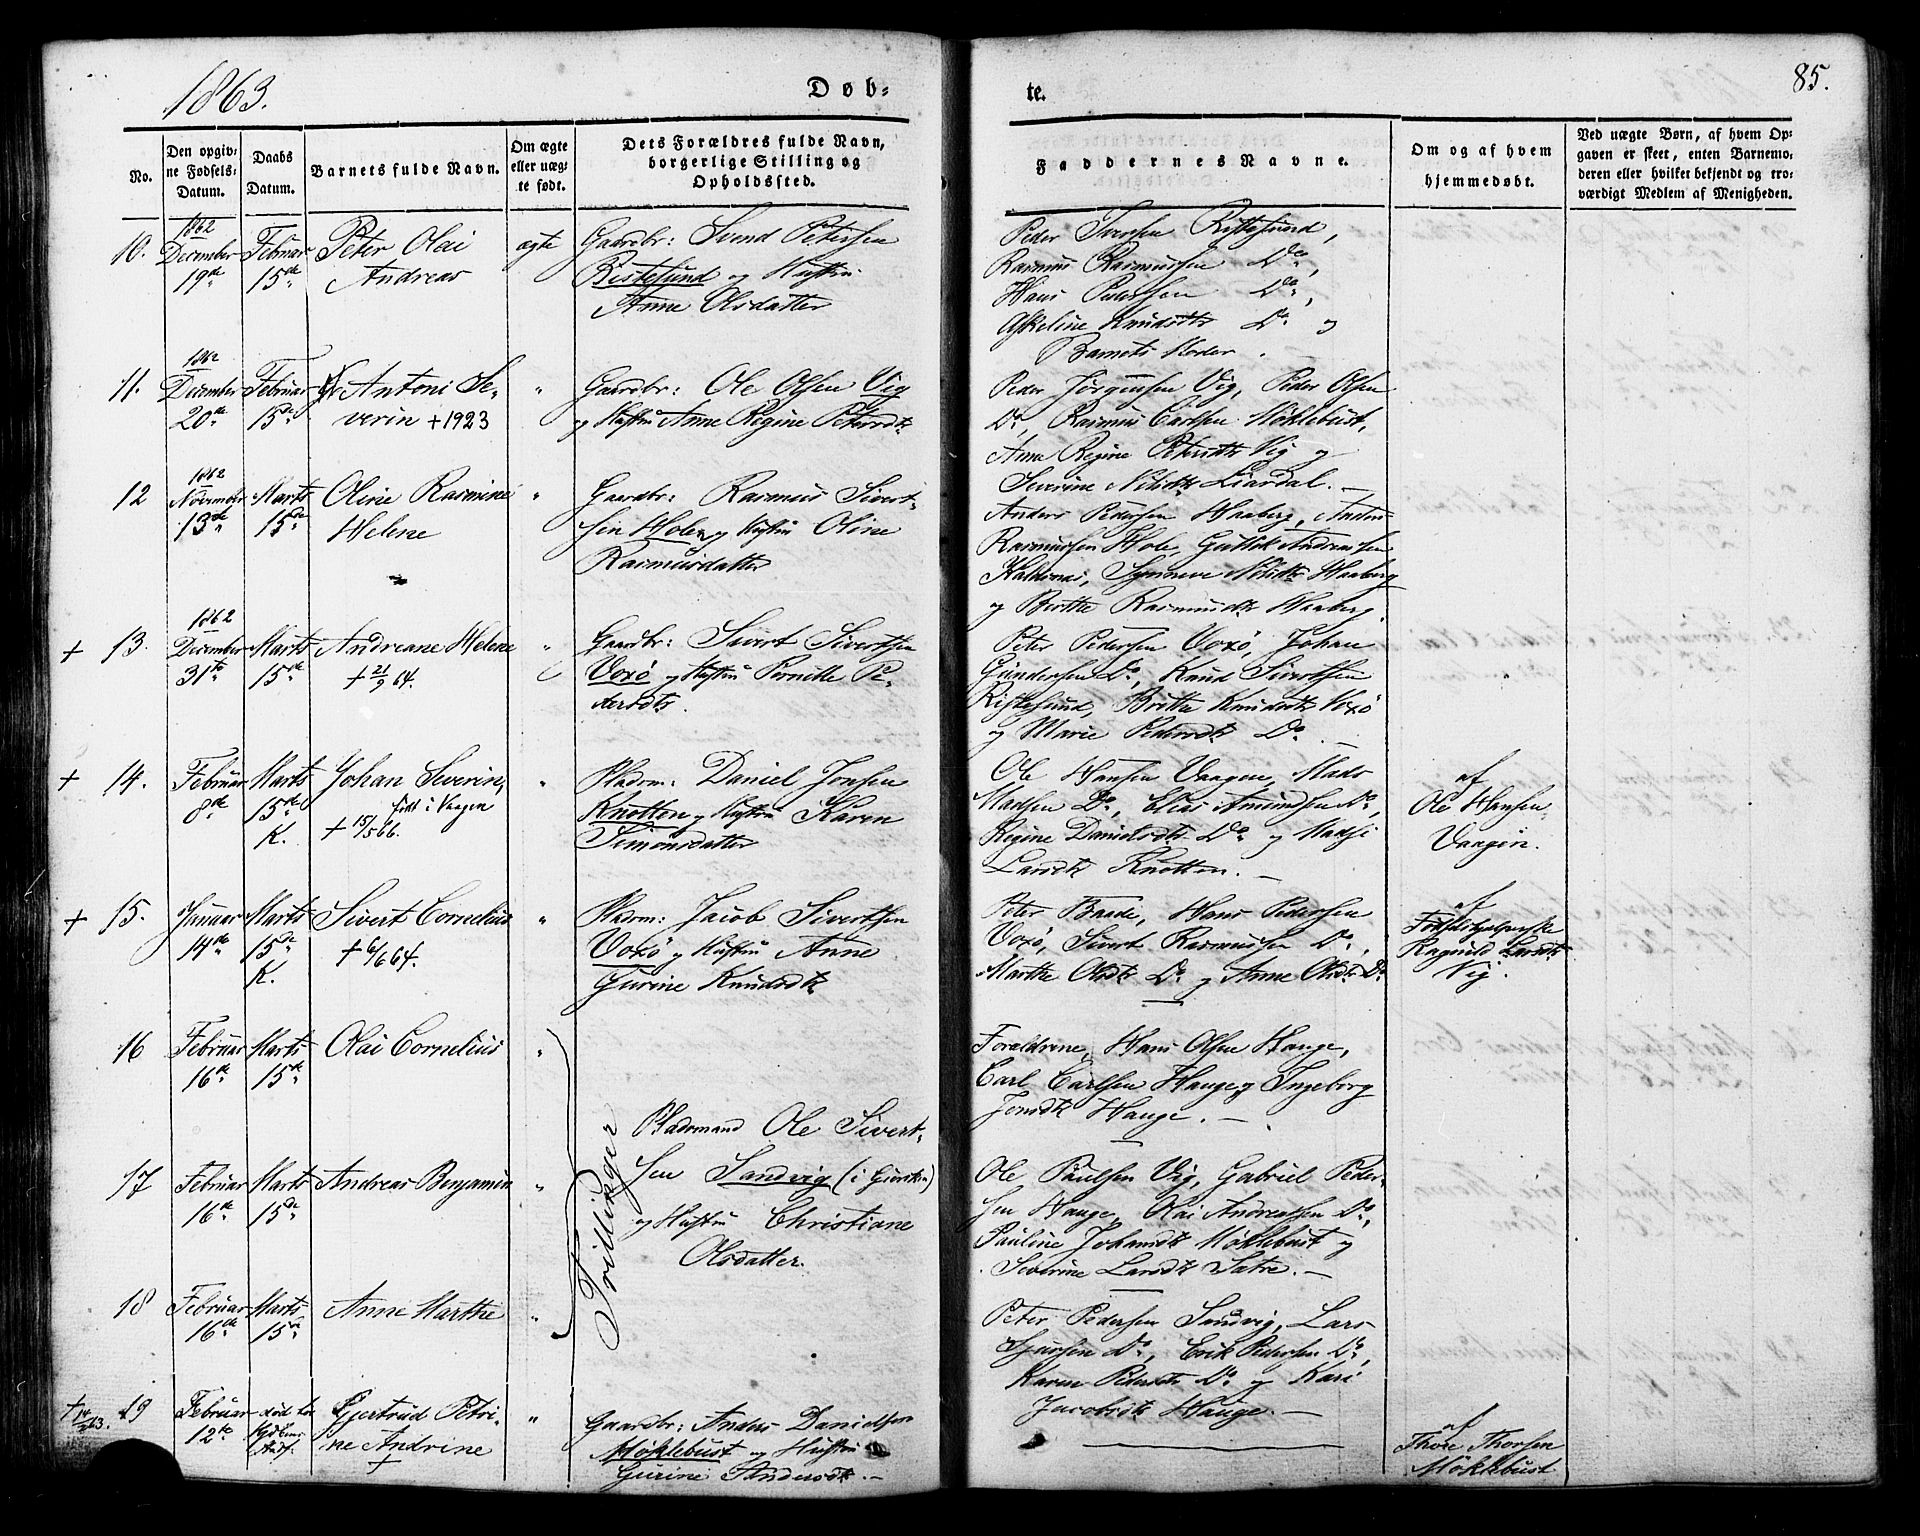 1863.
Døb-
te.
85.
No.
Den opgiv-
ne Fødsels-
Datum.
Daabs
Datum.
Barnets fulde Navn.
Om ægte
eller uæg-
te født.
Dets Forældres fulde Navn,
borgerlige Stilling og
Opholdssted.
Faddernes Navne.
Om og af hvem
hjemmedøbt.
Ved uægte Børn, af hvem Op-
gaven er skeet, enten Barnemo-
deren eller hvilket bekjendt og tro-
værdigt Medlem af Menigheden.
10.
1862
December
19de
Februar
15de
Peter Olai
Andreas
ægte
Gaardbr: Svend Petersen
Ristesund og Hustru
Anne Olsdatter
Peder Iversen Ristesund,
Rasmus Rasmussen Do,
Hans Pedersen Do,
Knudsdtr Do og
Barnets Moder.
11.
1862
December
20de
Februar
15de
Antoni Se-
verin + 1923
"
Gaardbr: Ole Olsen Vig
og Hustru Anne Regine Petersdt
Peder Jørgensen Vig, Peder Olsen
Do, Rasmus Carlsen Møklebust,
Anne Regine Petersdtr Vig og
Severine Nilsdtr Liardal. —
12
1862
November
13de
Marts
15de
Oline Rasmine
Helene
"
Gaardbr: Rasmus Sivert-
sen Hole og Hustru Oline
Rasmusdatter
Anders Pedersen Haaberg,
Rasmussen Hole, Andreassen
Synneve Nilsdtr Haaberg
og Berthe Rasmusdtr Haaberg
+ 13.
1862
December
31te
Marts
15de
Andreane Helene
+ 21/9 64.
"
Gaardbr: Sivert Sivertsen
Voxø og Hustru Pernille Pe-
dersdtr.
Peter Pedersen Voxø, Johan
Gundersen Do, Knud Sivertsen
Ristesund, Britha Knudsdtr Voxø
og Marie Pedersdtr Do. —
+ 14.
Februar
8de
Marts
15de
K.
Johan Severin,
født i Vaagen
+ 15/5 66.
"
Pladsm: Daniel Jonsen
Knotten og Hustru Karen
Simonsdatter
Ole Hansen Vaagen, Mads
Madsen Do, Elias Amundsen Do,
Regine Danielsdtr Do og
Larsdtr Knotten. —
af
Ole Hansen
Vaagen.
+ 15.
Januar
14de
Marts
15de
K.
Sivert Cornelius
+ 6/6 64.
"
Pladsm: Jacob Sivertsen
Voxø og Hustru Anne
Gurine Knudsdtr
Peter Baade, Hans Pedersen
Voxø, Sivert Rasmussen Do,
Marthe Olsdtr Do og Anne Olsdtr Do.
af
Ragnild Larsdtr
Vig.
16
Februar
16de
Marts
15de
Olai Cornelius
"
Forældrene, Hans Olsen Hauge,
Carl Carlsen Hauge og Ingeborg
Jonsdtr Hauge. —
Trillinger
Pladsmand Ole Sivert-
sen Sandvig (i Giersken)
og Hustru Christiane
Olsdatter.
17
Februar
16de
Marts
15de
Andreas Benjamin
"
Ole Paulsen Vig, Gabriel Peder-
sen Hauge, Olai Andreassen Do,
Pauline Johansdtr Møklebust og
Severine Larsdtr Sætre. —
18
Februar
16de
Marts
15de
Anne Marthe
"
Peter Pedersen Sandvig, Lars
Do, Erik Pedersen Do,
Karen Pedersdtr Do og Kari
Jacobsdtr Hauge. —
19
Februar
12te
død
Gjertrud Petri-
ne Andrine
+
"
Gaardbr: Anders Danielsen
Møklebust og Hustru
Gurine Andersdtr. —
af
Thore Thorsen
Møklebust